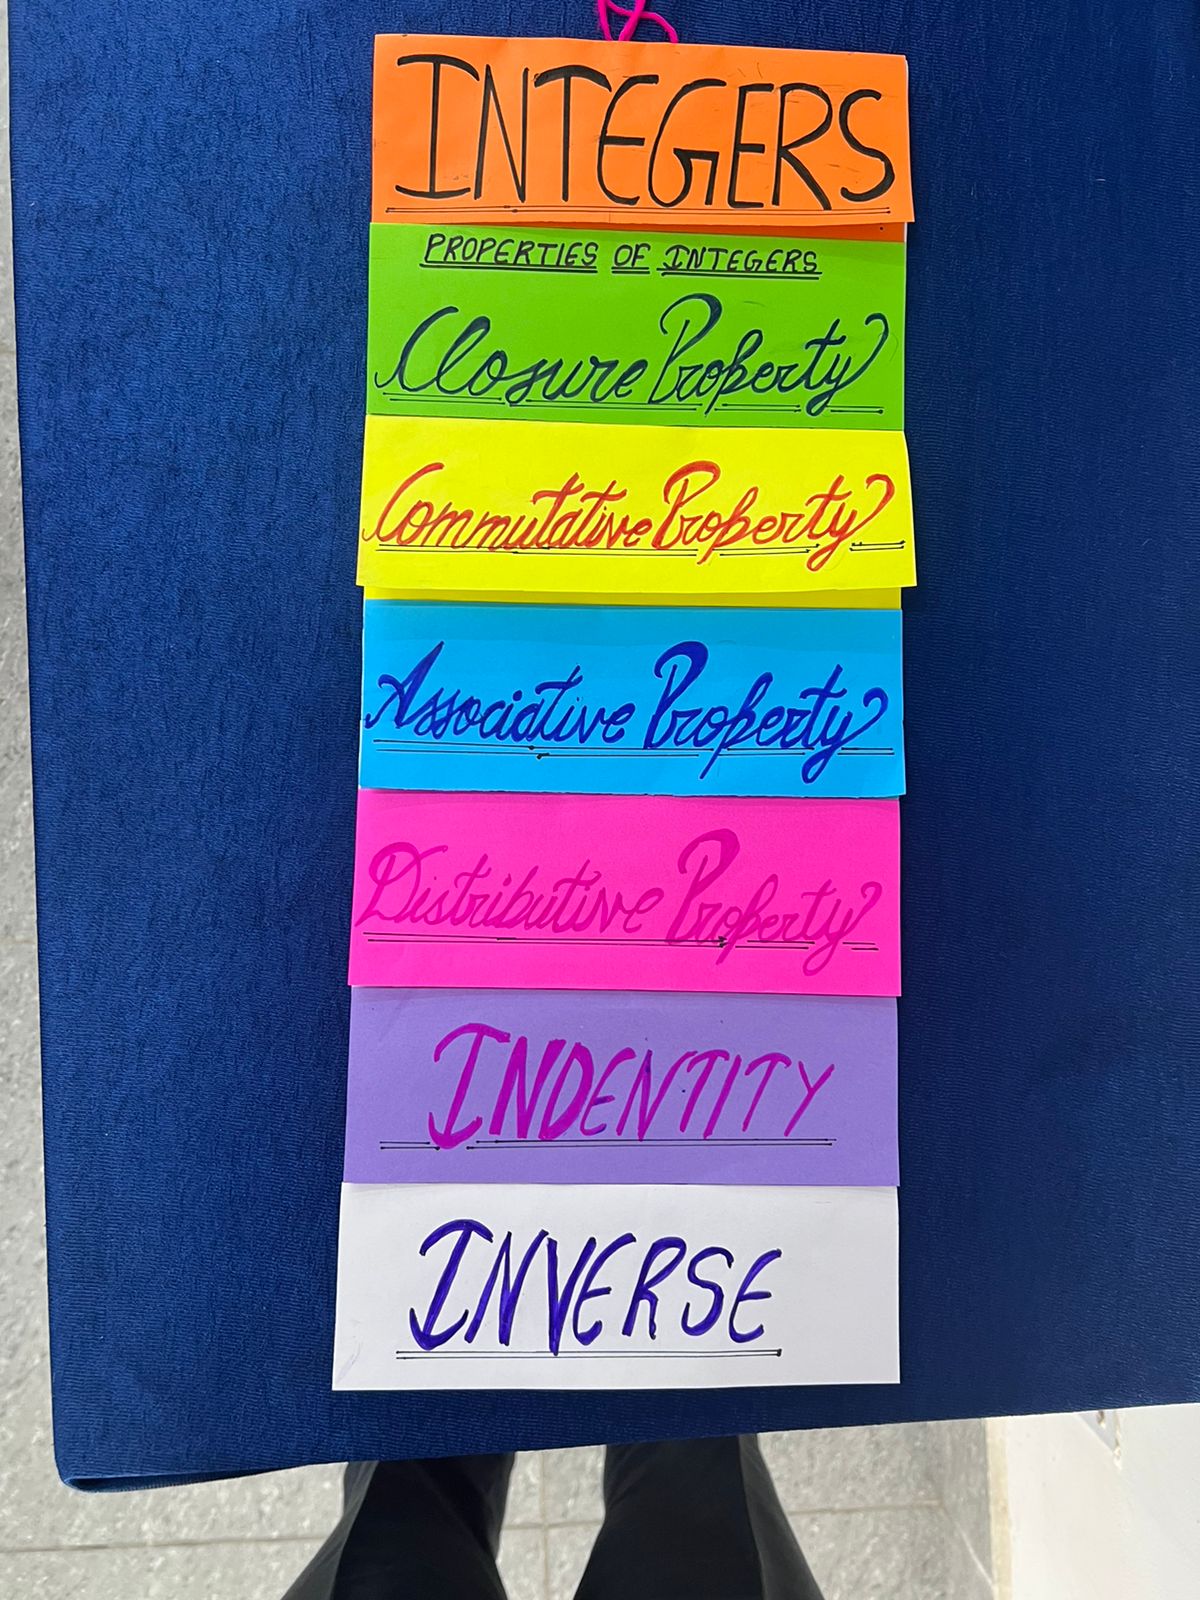 INTEGERS
PROPERTIES OF INTEGERS
Closure Property
Commutative Property
Associative Property
Distributive Property
INDENTITY
INVERSE